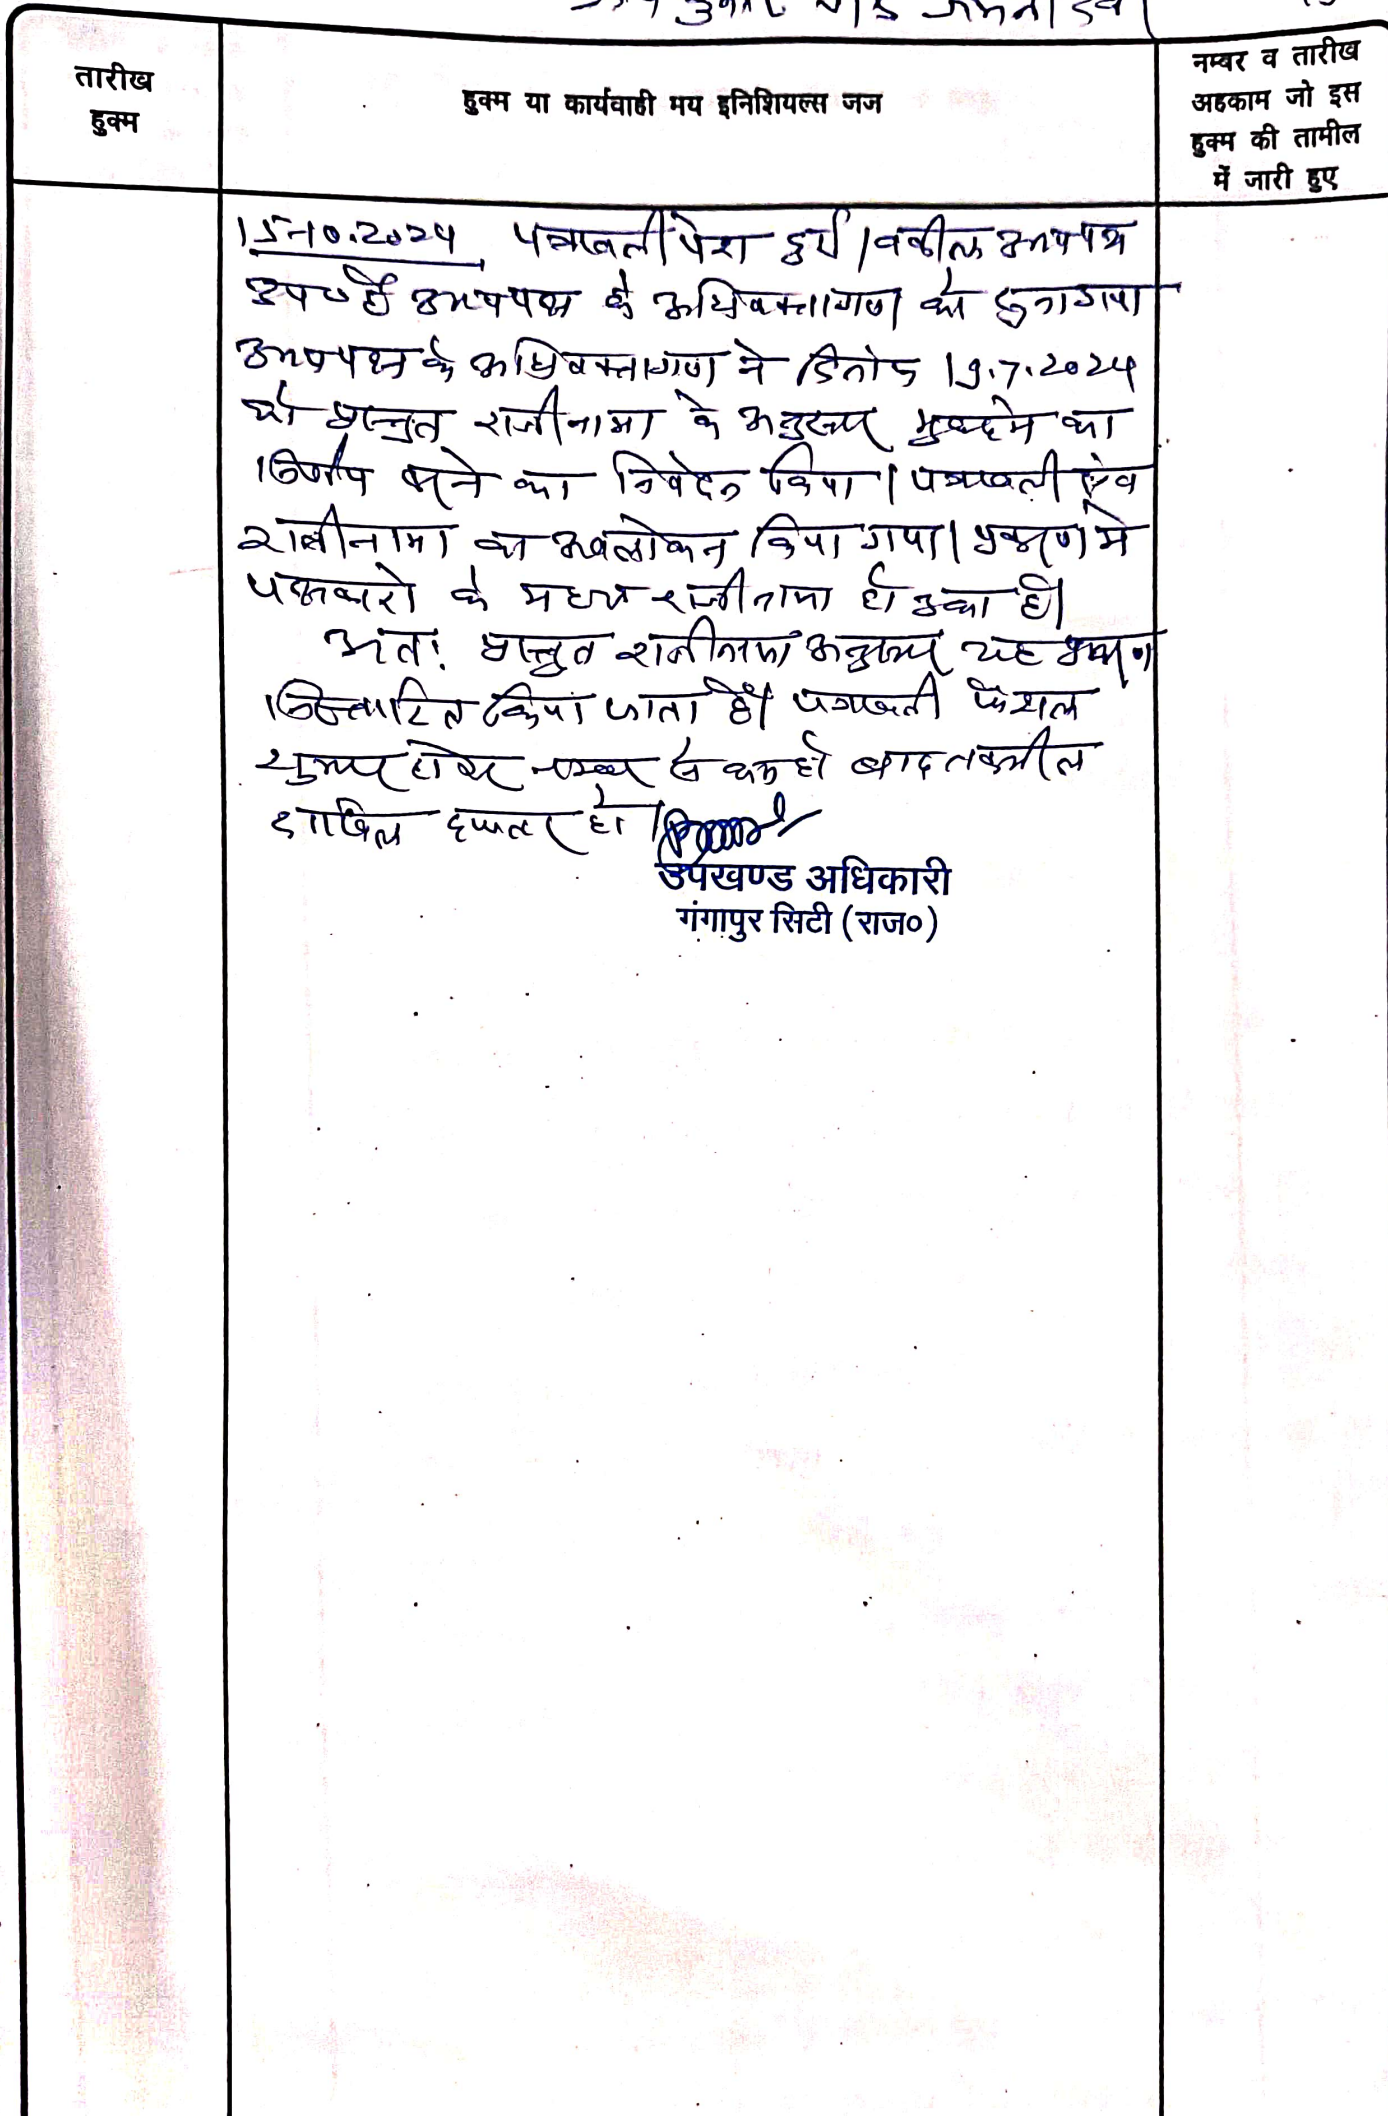 तारीख
हुक्म
हुक्म या कार्यवाही मय इनिशियल्स जज
नम्बर व तारीख
अहकाम जो इस
हुक्म की तामील
में जारी हुए
15-10.2024 पत्रावली पेश हुई। वकील उभयपक्ष
उप० है उभयपक्ष के अधिवक्तागण को सुना गया
उभयपक्ष के अधिवक्तागण ने दिनांक 19.7.2024
को प्रस्तुत राजीनामा के अनुरूप मुकदमे का
निर्णय करने का निवेदन किया। पत्रावली एवं
राजीनामा का अवलोकन किया गया। प्रकरण मे
पक्षकारो के मध्य राजीनामा हो चुका है।
अतः प्रस्तुत राजीनामा अनुरूप यह प्रकरण
निस्तारित किया जाता है। पत्रावली फैसल
शुमार होकर नम्बर से कम हो बाद तकमील
दाखिल दफ्तर हो।
उपखण्ड अधिकारी
गंगापुर सिटी (राज०)